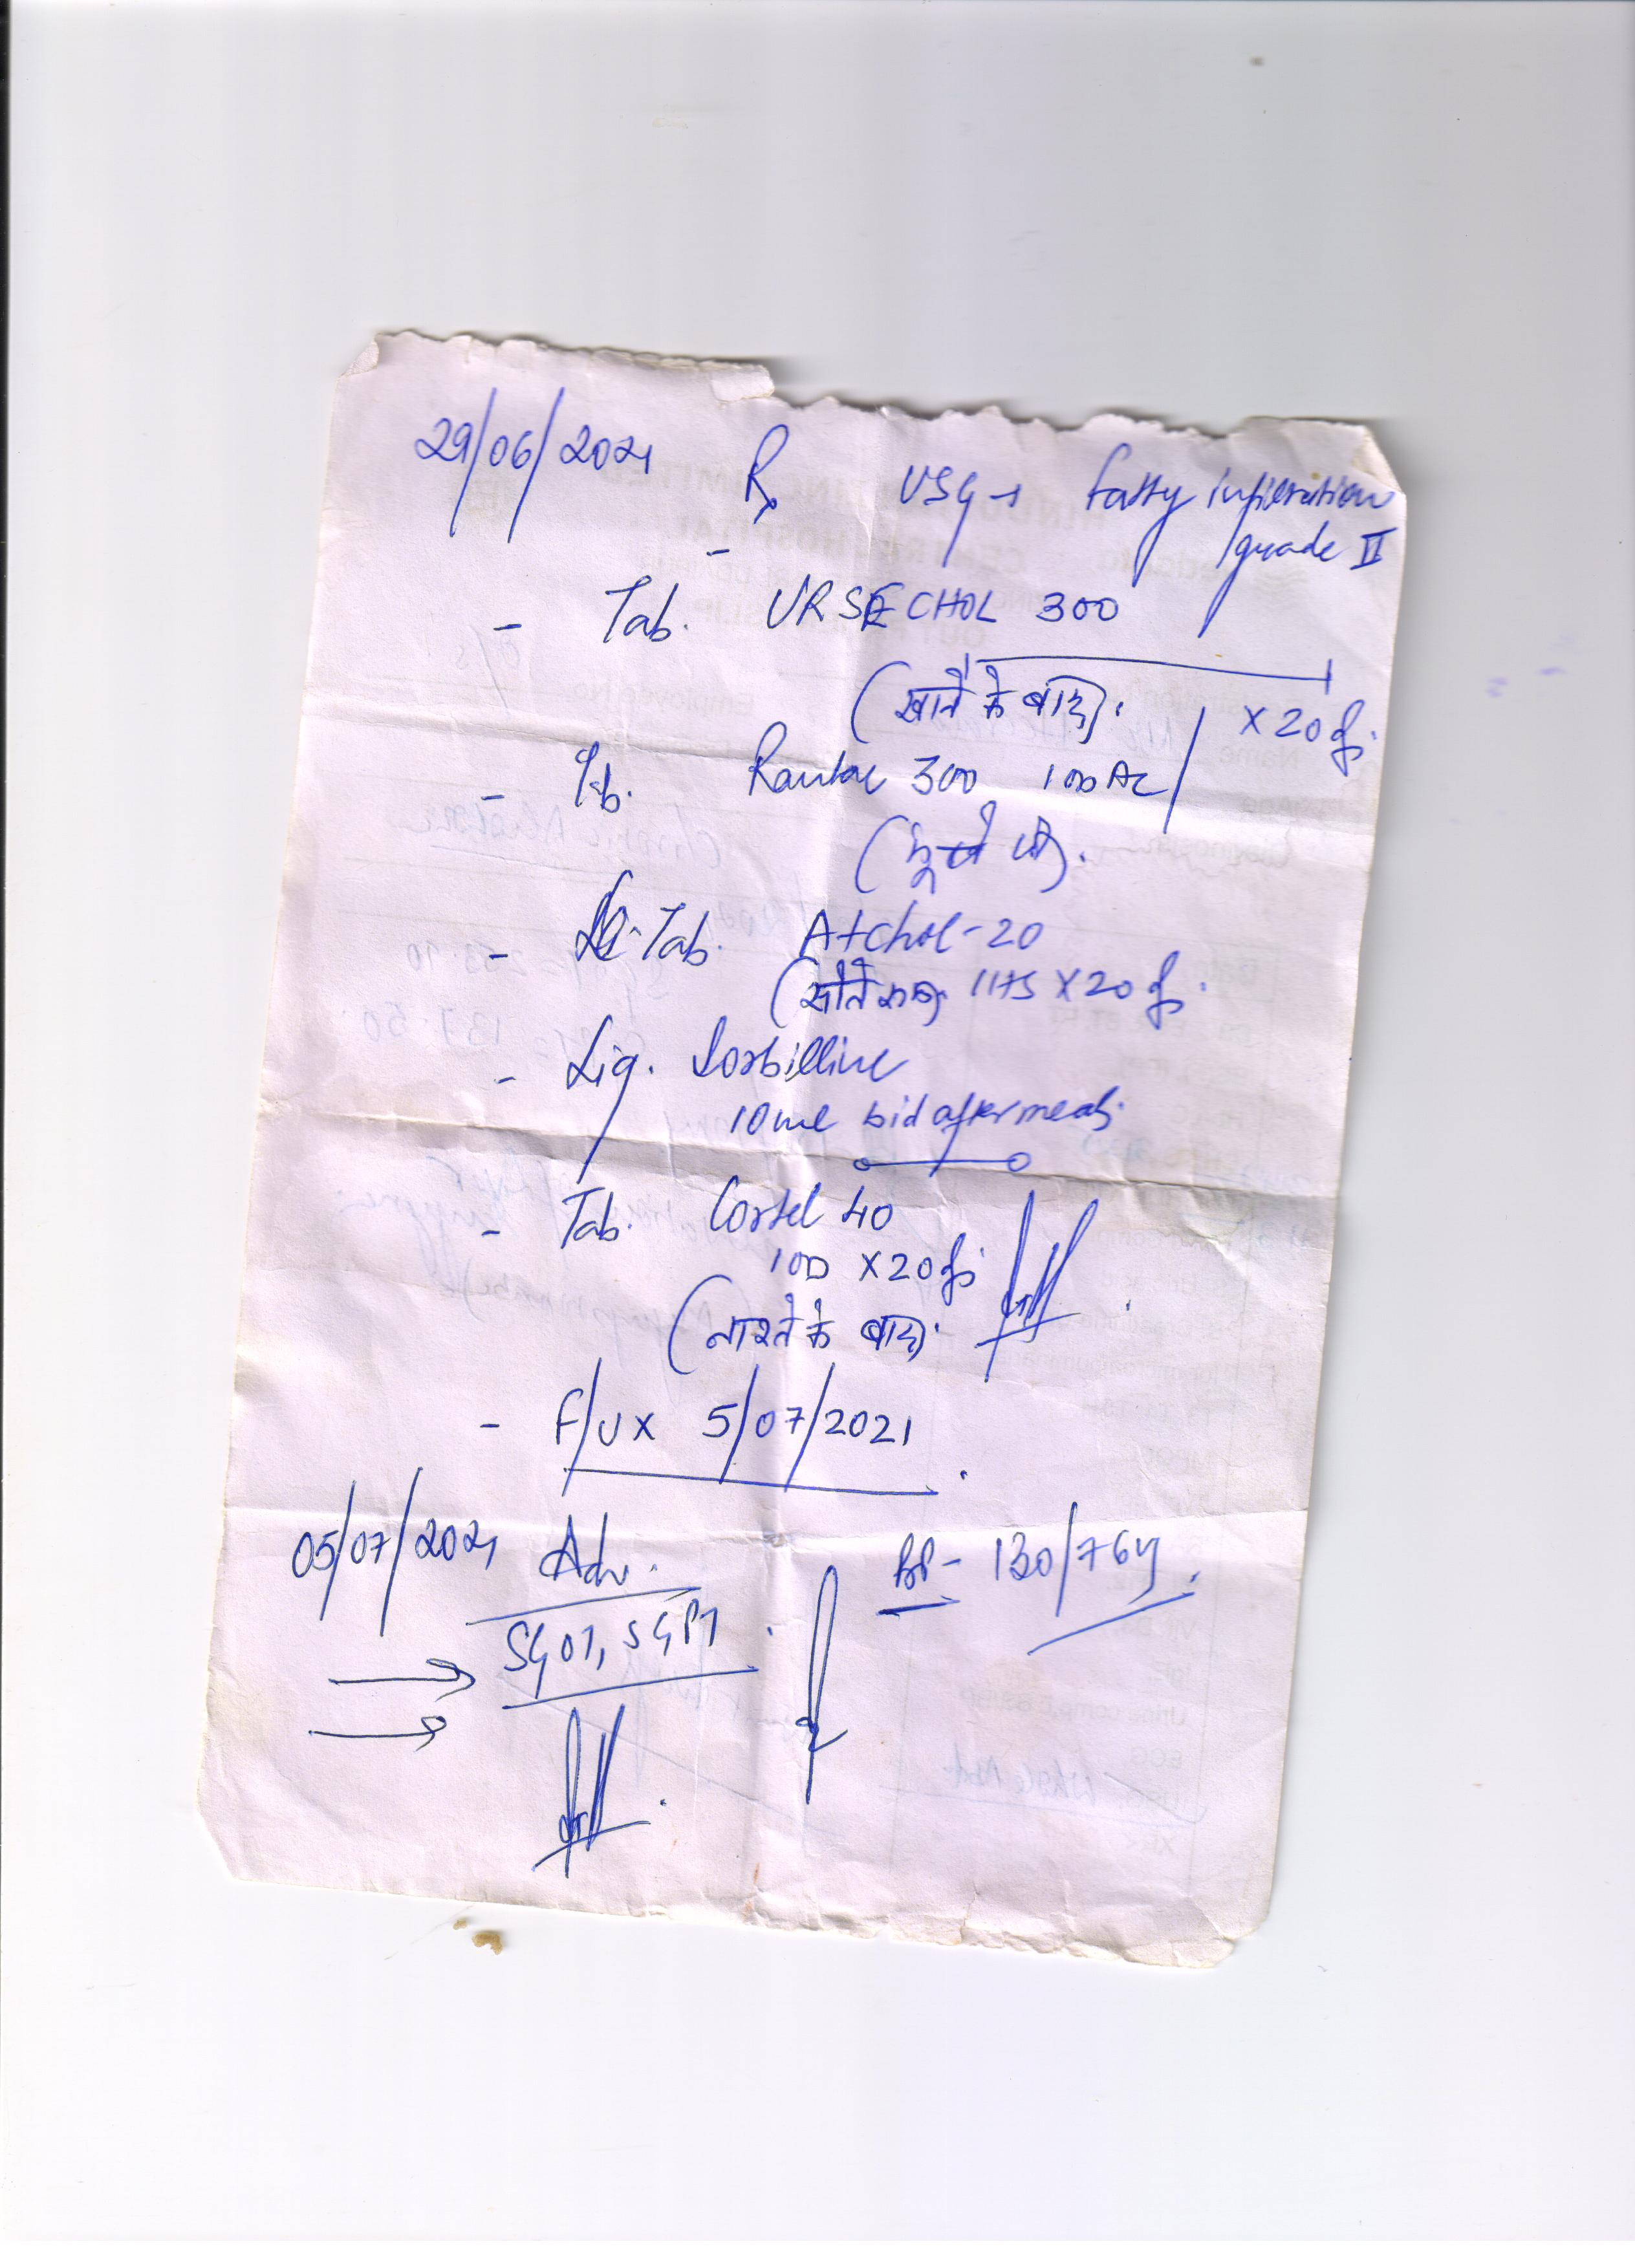 29/06/2021 Rx USG → Fatty infiltration
grade II
- Tab. URSECHOL 300
(खाने के बाद). x 20 ds.
- Tab. Rantac 300 1 OD AC
- Tab. Atchol-20
1 HS X 20 ds.
- Liq. Sorbilline
10 ml bid after meals.
- Tab. Cortel 40
1 OD X 20 ds
(नाश्ते के बाद).
- F/U x 5/07/2021
05/07/2021 Adv. BP - 130/76
SGOT, SGPT